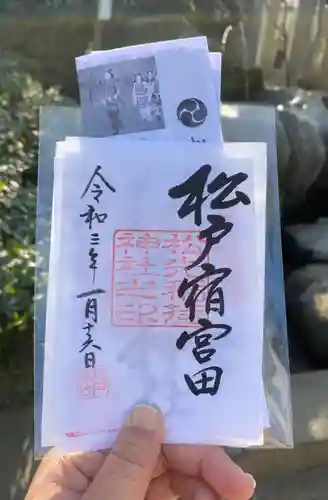 松戸宿宮田
松先稲荷
神社之印
令和三年一月十六日